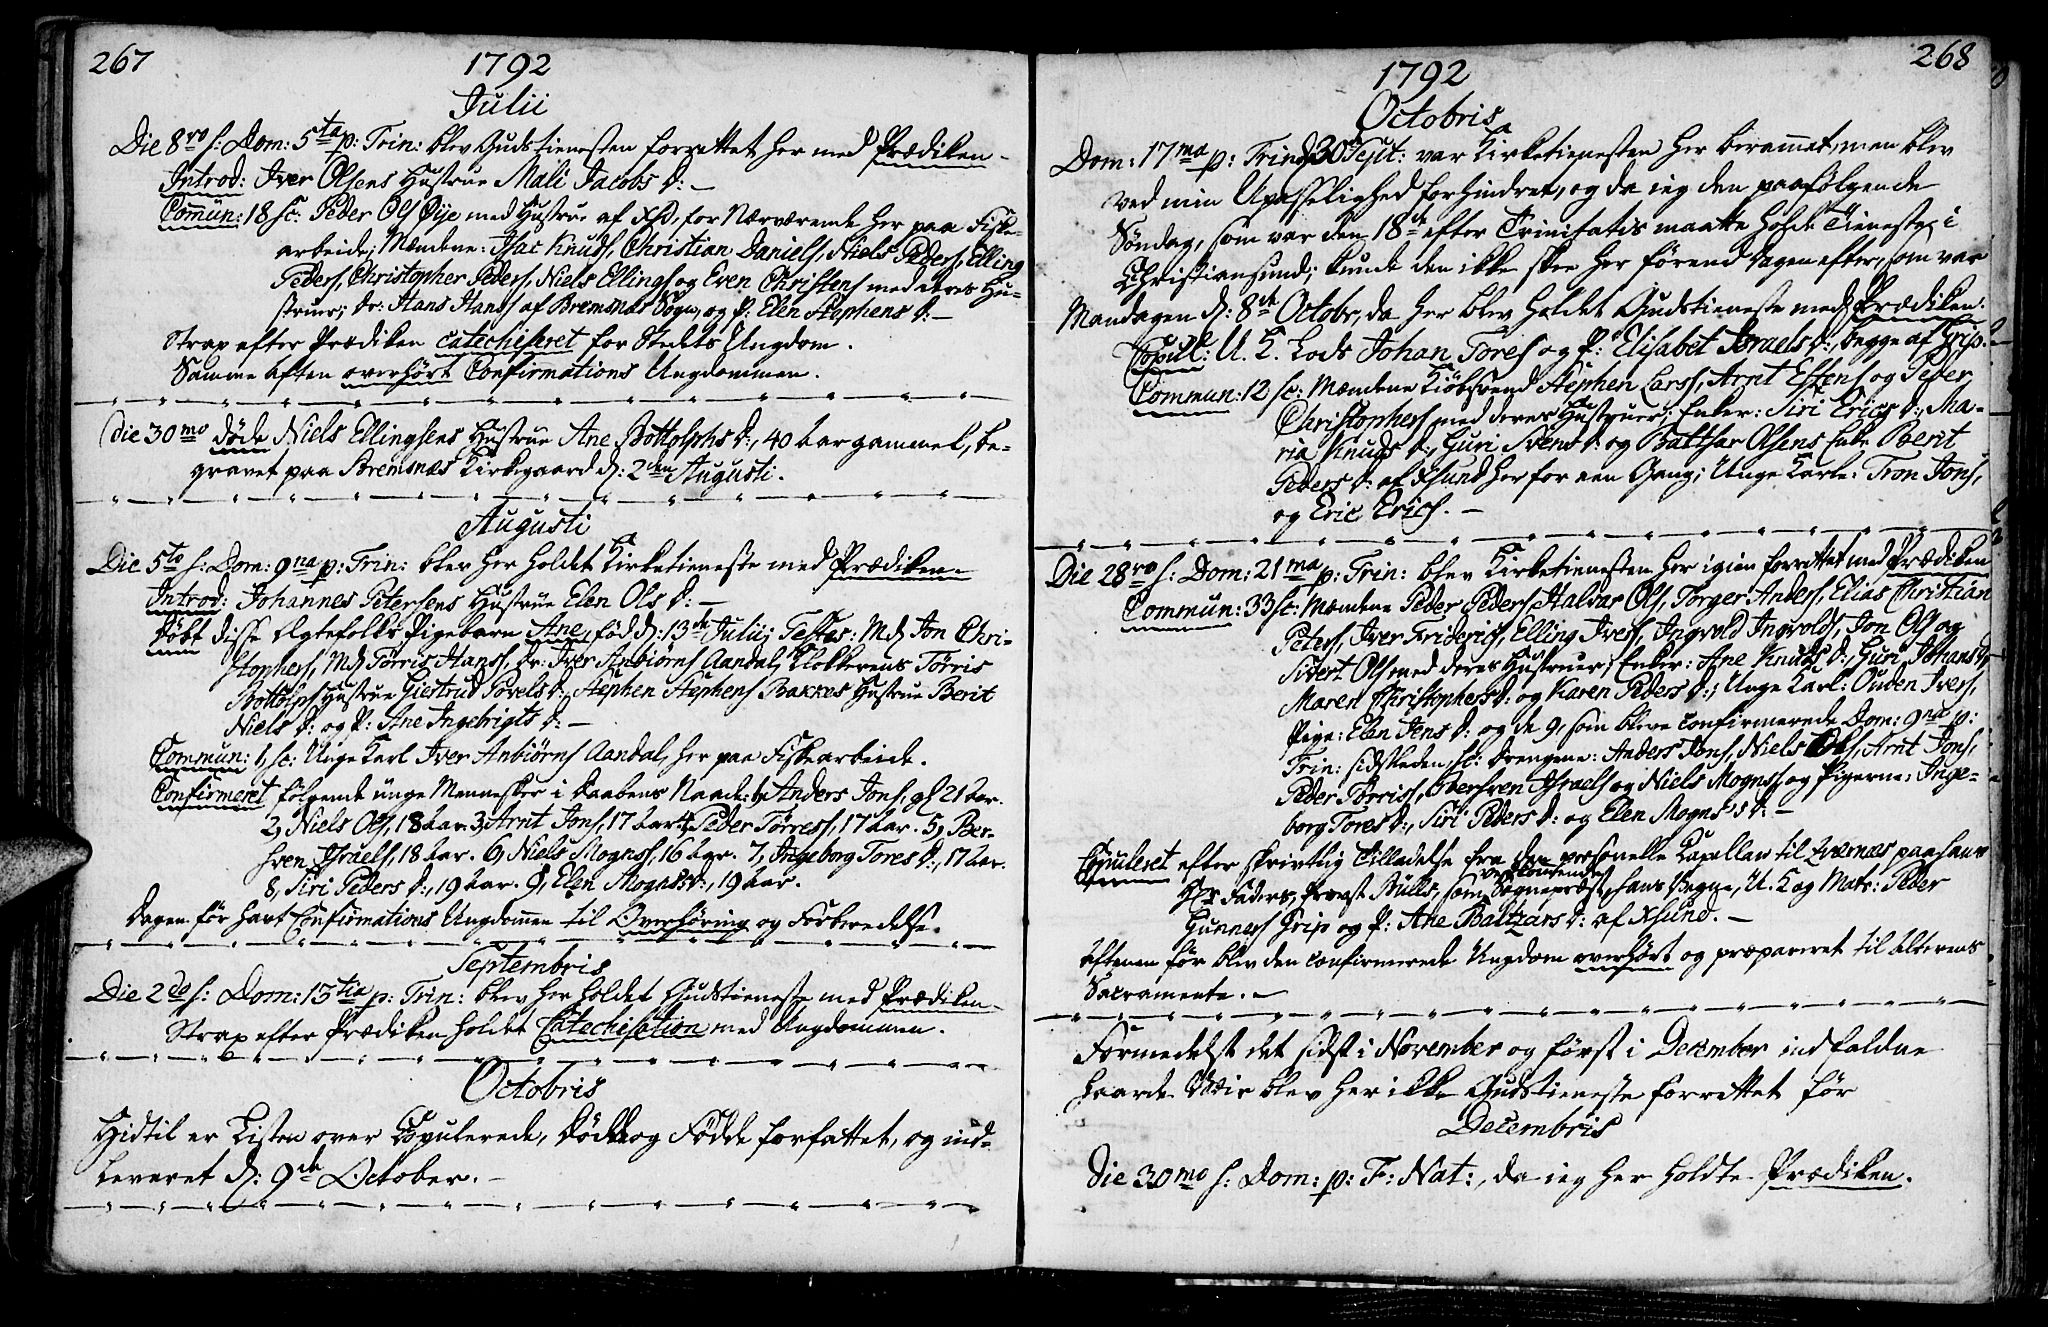 267
1792
Julii
Die 8ro s: Dom: 5ta p: Trin: blev Gudstienesten forrettet her med Prædiken.
Introd: Iver Olsens Hustrue Mali Jacobs D: —
Com̄un: 18 sc: Peder Ols Øije med Hustrue af XSd, for Nærværende her paa Fiske-
arbeide; Mændene: Isac Knuds, Christian Daniels, Niels Peders, Elling
Peders, Christopher Peders, Niels Ellings og Even Christens med deres Hu-
struer; Dr: Hans Hans af Bremsnæs Sogn, og P: Elen Stephens D: —
Strax efter Prædiken catechiseret for Stedets Ungdom.
Samme Aften overhørt Confirmations Ungdommen.
Die 30mo døde Niels Ellingsens Hustrue Ane Bottolphs D:, 40 Aar gammel, be-
gravet paa Bremsnæs Kirkegaard d: 2den Augusti.
Augusti
Die 5to s: Dom: 9na p: Trin: blev her holdet Kirketieneste med Prædiken.
Introd: Johannes Petersens Hustrue Elen Ols D: —
Døbt disse Ægtefolks Pigebarn Ane, fød d: 13de Julii; Testes: Md Jon Chri-
stophers, Md Tørris Hans, Dr: Iver Anbiørns Aandal, Klokkerens Tørris
Bottolphs Hustrue Giertrud Povels D:, Stephen Stephens Bakkes Hustrue Berit
Niels D: og P: Ane Ingebrigts D: —
Com̄un: 1, sc: Unge Karl Iver Anbiørns Aandal, her paa Fiskearbeide.
Confirmeret følgende unge Mennesker i Daabens Naade: 1, Anders Jons, gl 21 Aar.
2, Niels Ols, 18 Aar. 3, Arnt Jons, 17 Aar. 4, Peder Tørress, 17 Aar. 5, Ber-
sven Israels, 18 Aar. 6, Niels Mognss, 16 Aar. 7, Ingeborg Tores D:, 17 Aar.
8, Siri Peders D:, 19 Aar. 9, Elen Mognss D:, 19 Aar.
Dagen før havt Confirmations Ungdom̄en til Overhøring og Forberedelse.
Septembris
Die 2do s: Dom: 13tia p: Trin: blev her holdet Gudstieneste med Prædiken.
Strax efter Prædiken holdet Catechisation med Ungdommen.
Octobris
Hidtil er Listen over Copulerede, Døde og Fødde forfattet, og ind-
leveret d: 9de October. —
268
1792
Octobris
Dom: 17ma p: Trin: d 30 Sept: var Kirketienesten her berammet, men blev
ved min Upasselighed forhindret, og da ieg den paafølgende
Søndag, som var den 18de efter Trinitatis maatte holde Tieneste i
Christiansund; kunde den ikke skee her førend Dagen efter, som var
Mandagen d: 8de Octobr, da her blev holdet Gudstieneste med Prædiken.
Copul: U. K. Lods Johan Tores og P: Elisabet Israels D:, begge af Grip.
Commun: 12 sc: Mændene Kiøbsvend Stephen Larss, Arnt Estens og Peder
Christophers med deres Hustruer; Enker: Siri Erics D:, Ma-
ria Knuds D:, Guri Svens D: og Baltsar Olsens Enke Berit
Peders D: af XSund her for een Gang; Unge Karle: Tron Jons,
og Eric Erics. —
Die 28vo s: Dom: 21ma p: Trin: blev Kirketienesten her igien forrettet med Prædiken
Commun: 33 sc: Mændene Peder Peders, Halvar Ols, Torger Anders, Elias Christian
Peters, Iver Friderics, Elling Ivers, Ingvold Ingvolds, Jon Ols og
Sivert Ols med deres Hustruer; Enker: Ane Knuds D:, Guri Johans D:,
Maren Christophers D: og Karen Peders D:; Unge Karl: Ouden Ivers,
Pige: Elen Jens D: og de 9, som bleve confirmerede Dom: 9na p:
Trin: sidstleden, sc: Drengene: Anders Jons, Niels Ols, Arnt Jons,
Peder Tørriss, Bersven Israels og Niels Mognss, og Pigerne: Inge-
borg Tores D:, Siri Peders D: og Elen Mognss D: —
Copuleret efter skrivtlig Tilladelse fra den personelle Capellan til Qværnæs paa hans
Hr Faders, Provst Bulls, som vedkommende Sognepræst, hans Vegne, U. K. og Matr: Peder
Gunners Grip og P: Ane Baltzars D: af XSund. —
Aftenen før blev den confirmerede Ungdom overhørt og præpareret til Alterens
Sacramente. —
Formedelst det sidst i November og først i December indfaldne
haarde Veir blev her ikke Gudstieneste forrettet før
Decembris
Die 30mo s: Dom: p: F: Nat:, da ieg her holdte Prædiken.